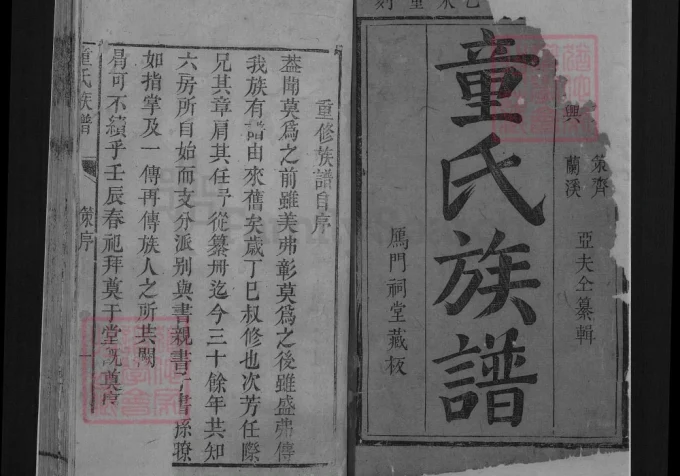 乙未重刻
興 策齊
蘭溪 亞夫仝纂輯
童氏族譜
鴈門祠堂藏板
重修族譜自序
蓋聞莫爲之前雖美弗彰莫爲之後雖盛弗傳
我族有譜由來舊矣歲丁巳叔修也次芳任際
兄其章肩其任予從纂冊迄今三十餘年共知
六房所自始而支分派別與書親書子書孫瞭
如指掌及一傳再傳族人之所共闕
曷可不續乎壬辰春祀拜奠于堂既奠序
童氏族譜 策序 一